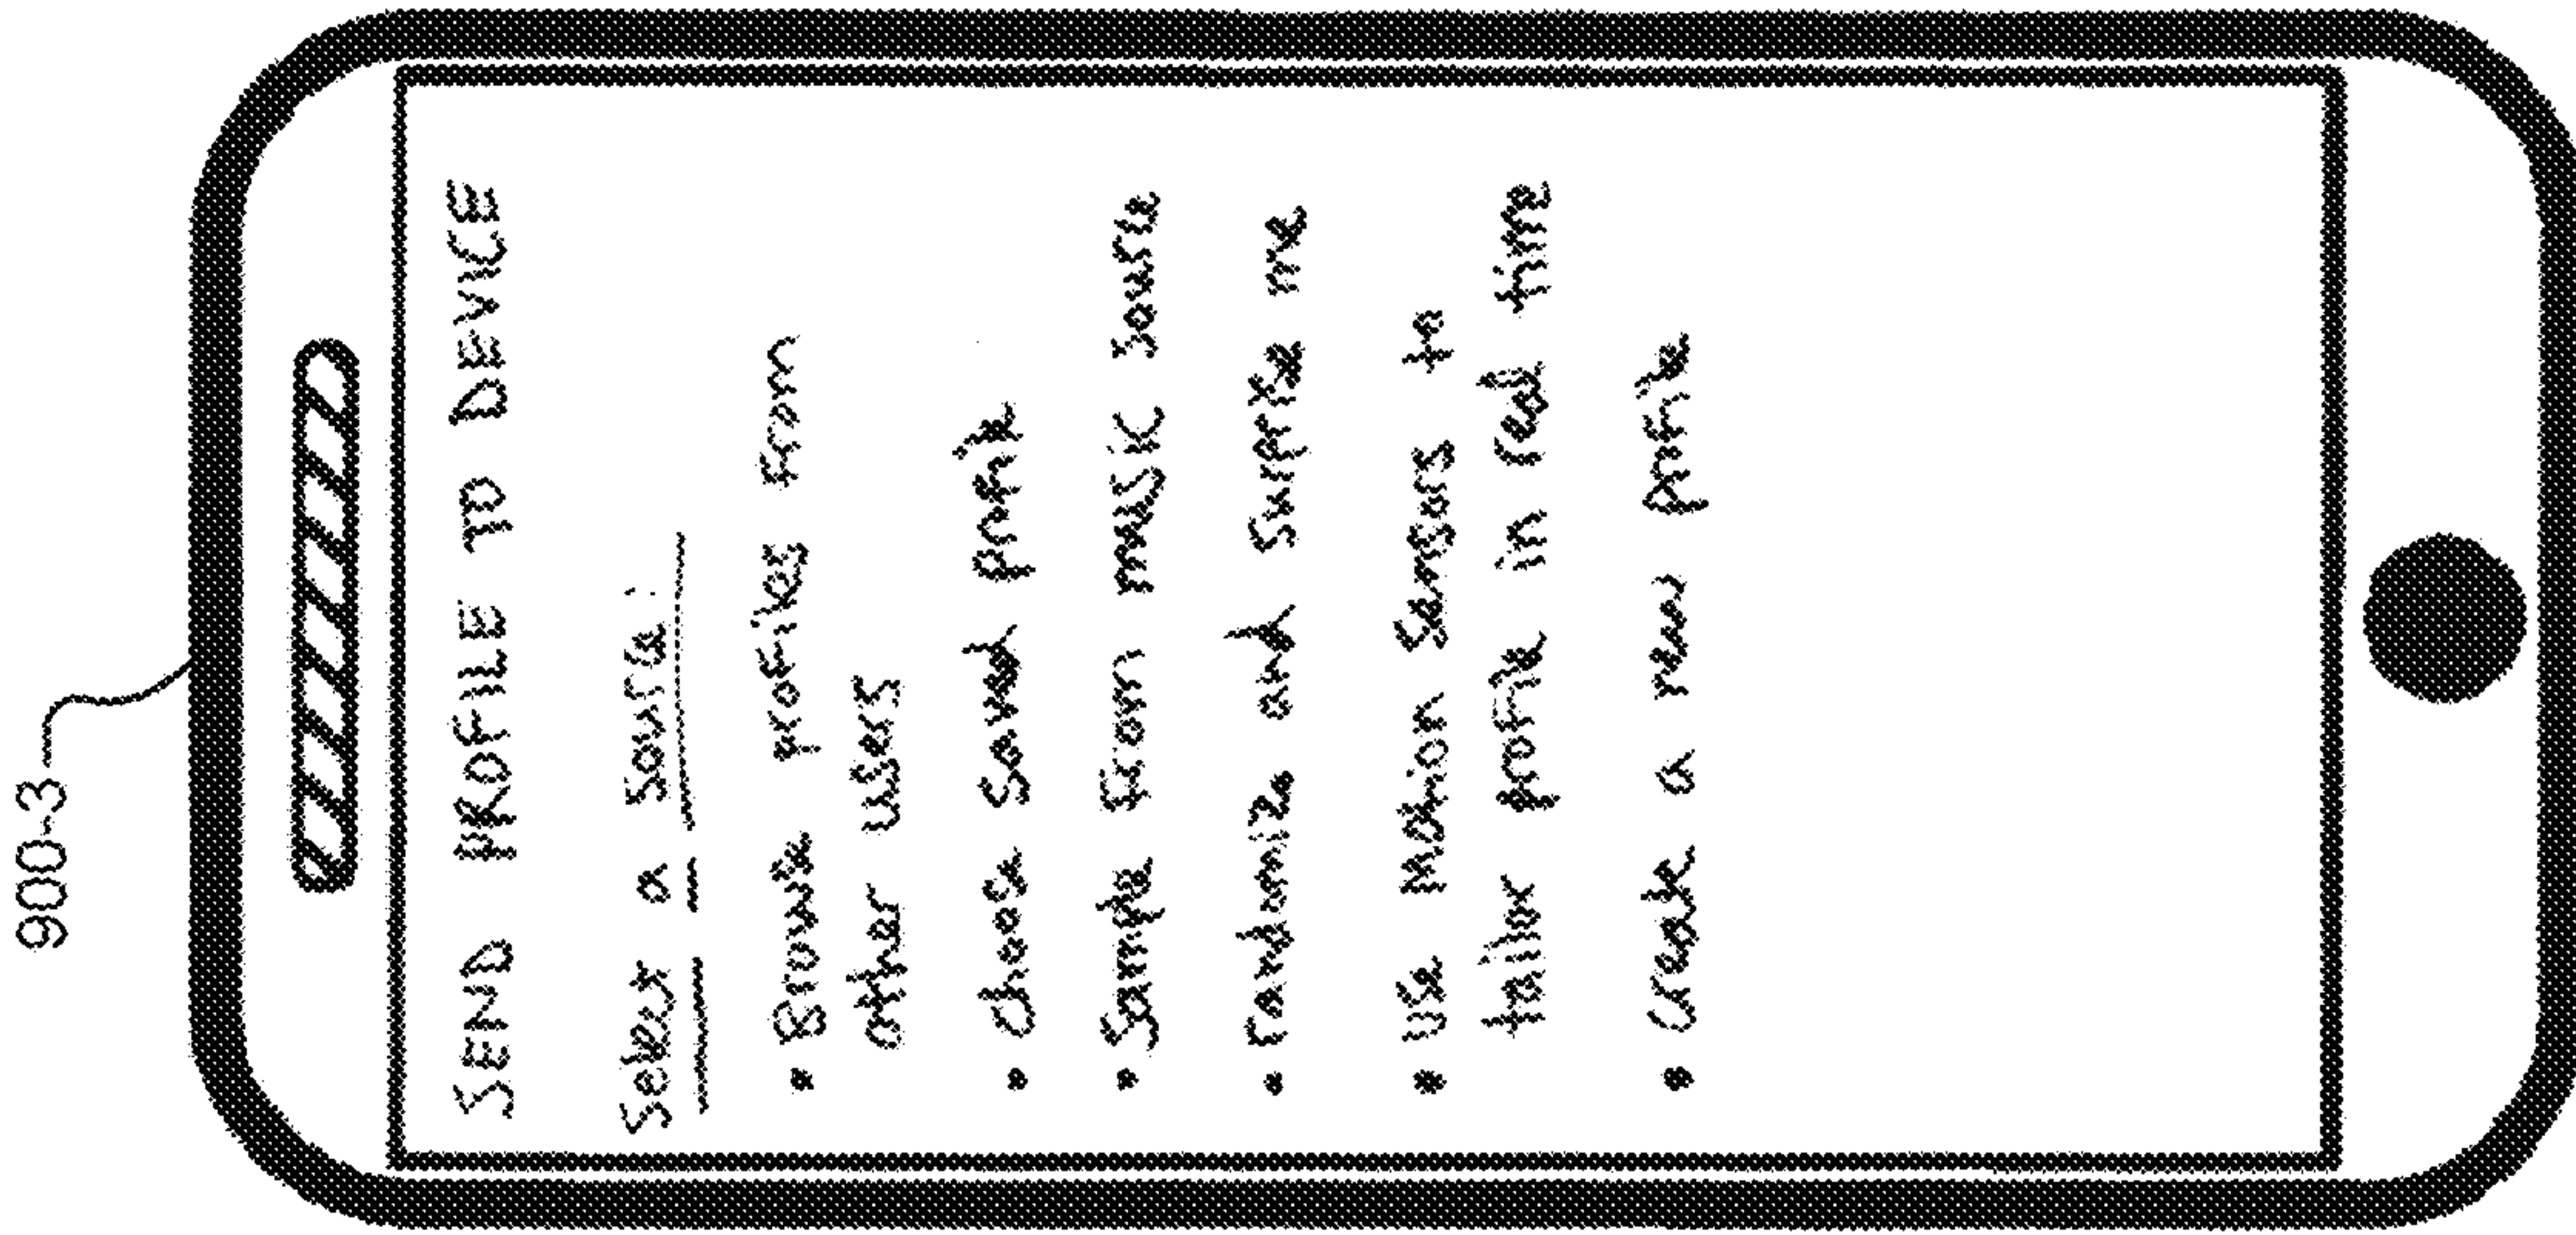 900-3
SEND PROFILE TO DEVICE
Select a Source:
• Browse profiles from
other users
• Choose Saved profile
• Sample from music source
• randomize and Surprise me
• Use Motion Sensors to
tailor profile in real time
• Create a new profile